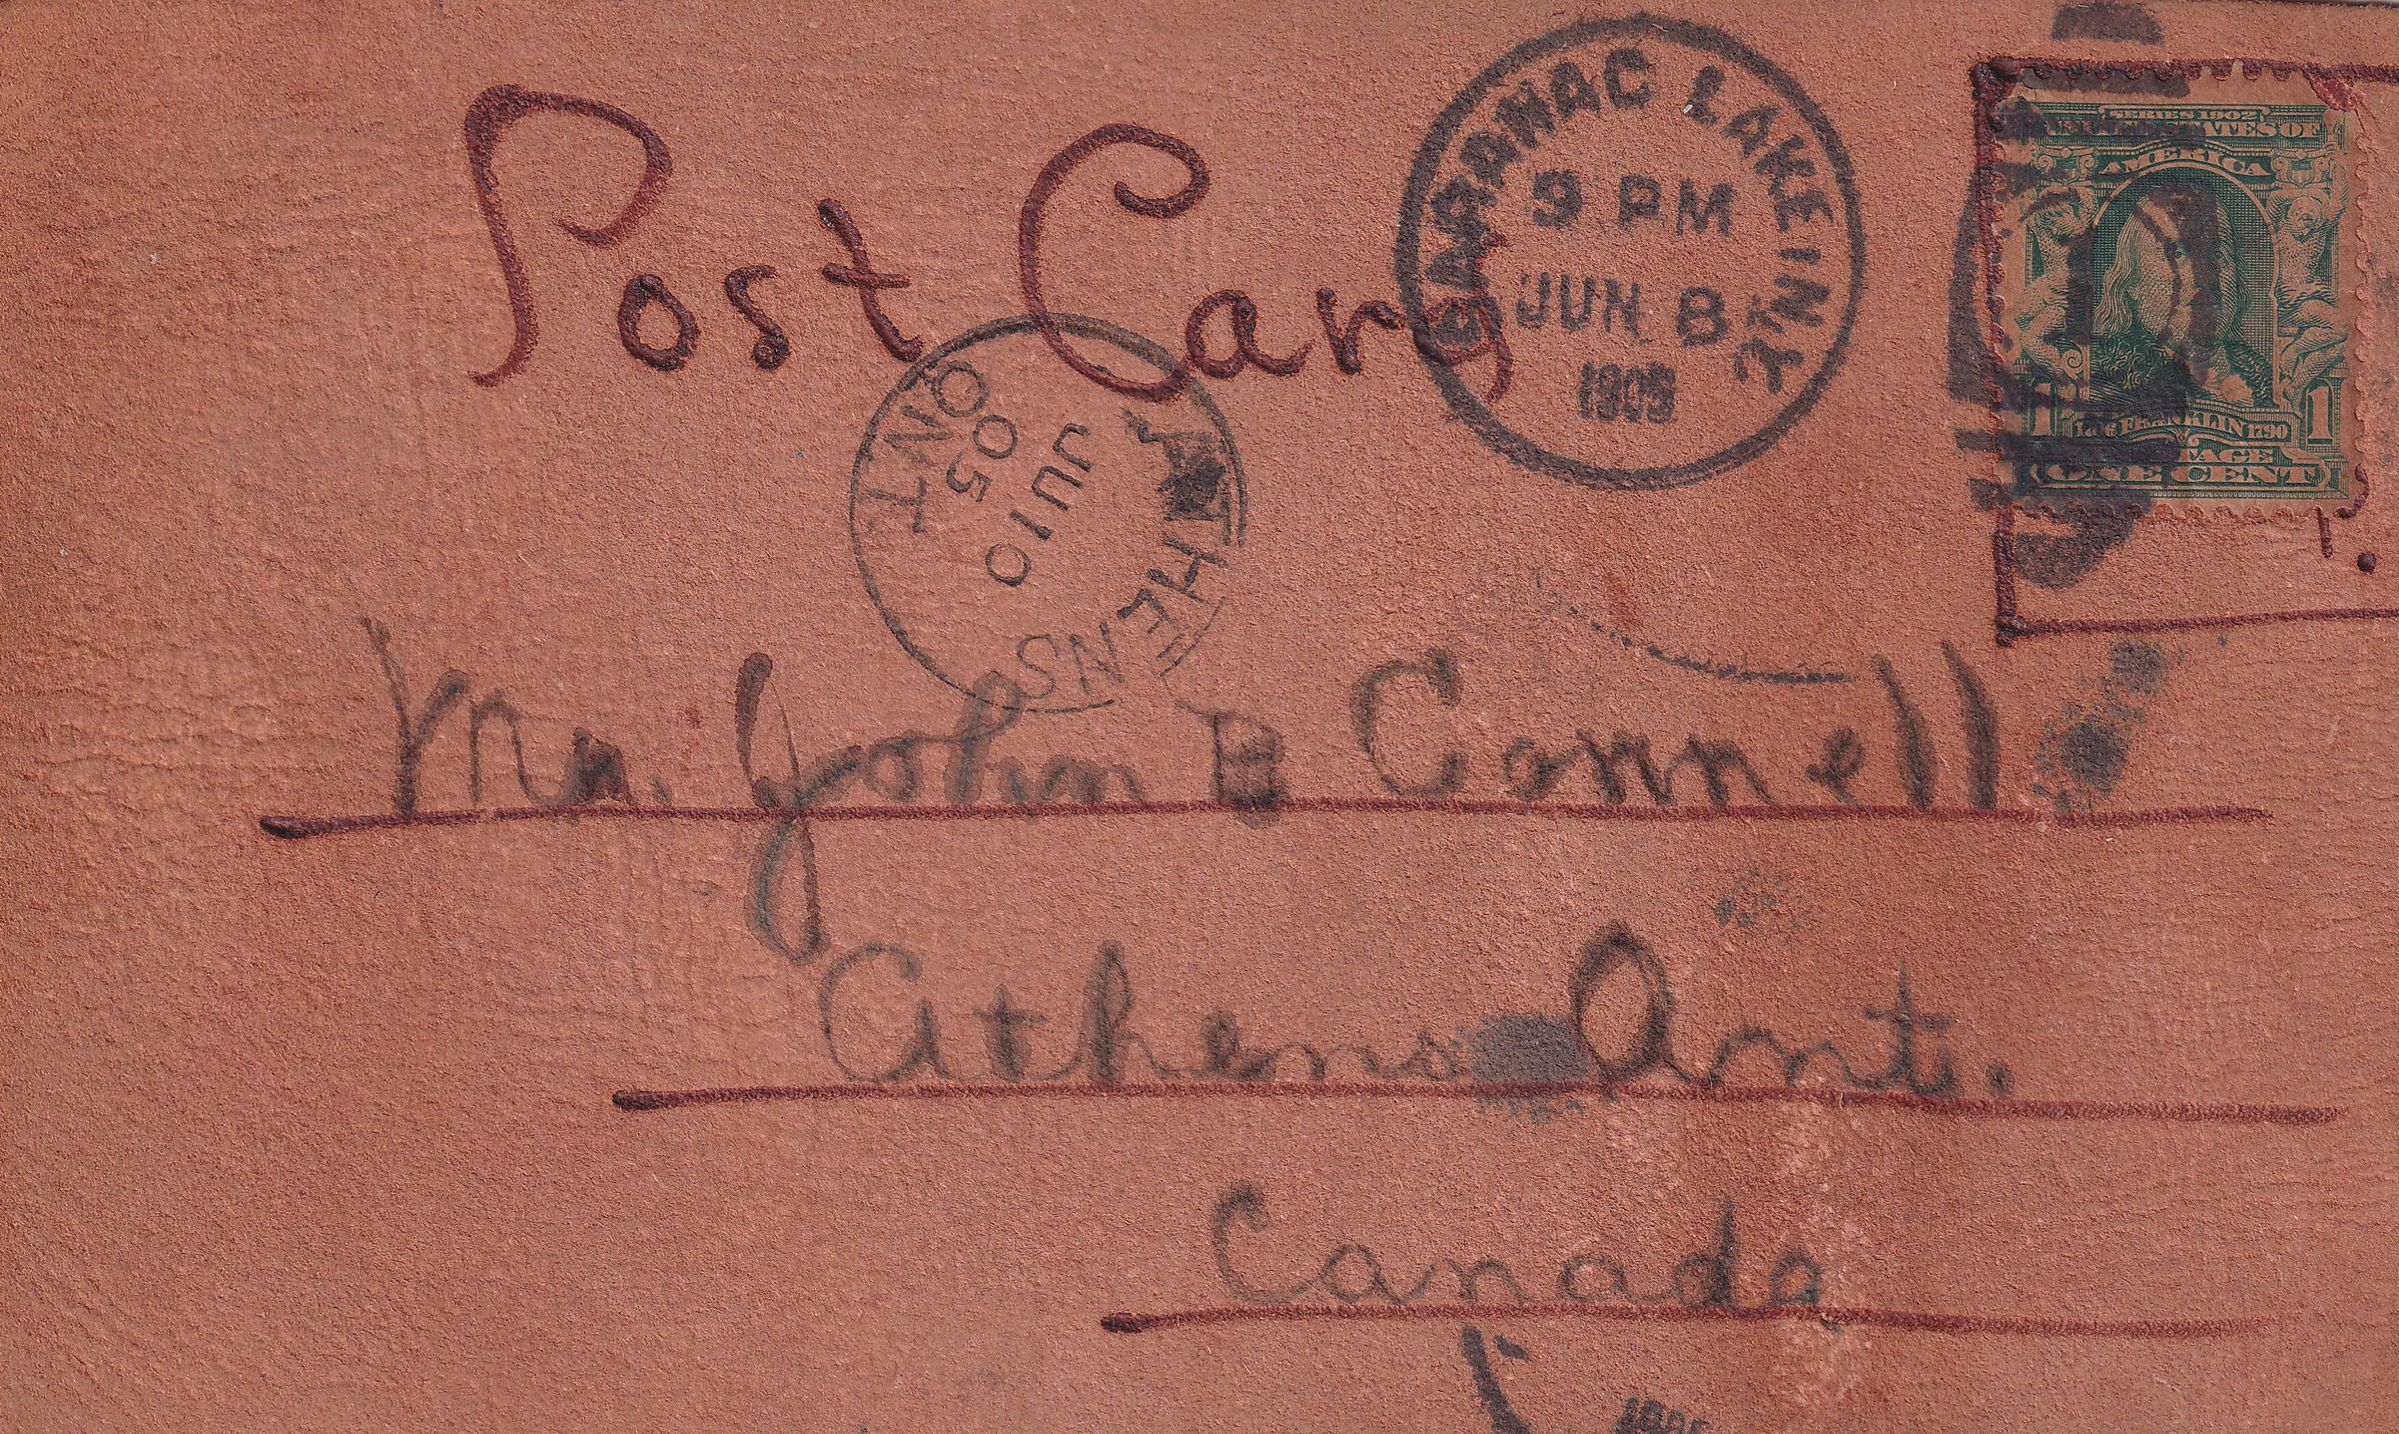 Post Card
SARANAC LAKE IN N.Y.
9 PM
JUN 8
SERIES 1902
UNITED STATES OF
AMERICA
1 FRANKLIN 1790 1
POSTAGE
ONE CENT
ATHENS
JU 10
05
ONT
Mr. John B Connell
Athens Ont.
Canada